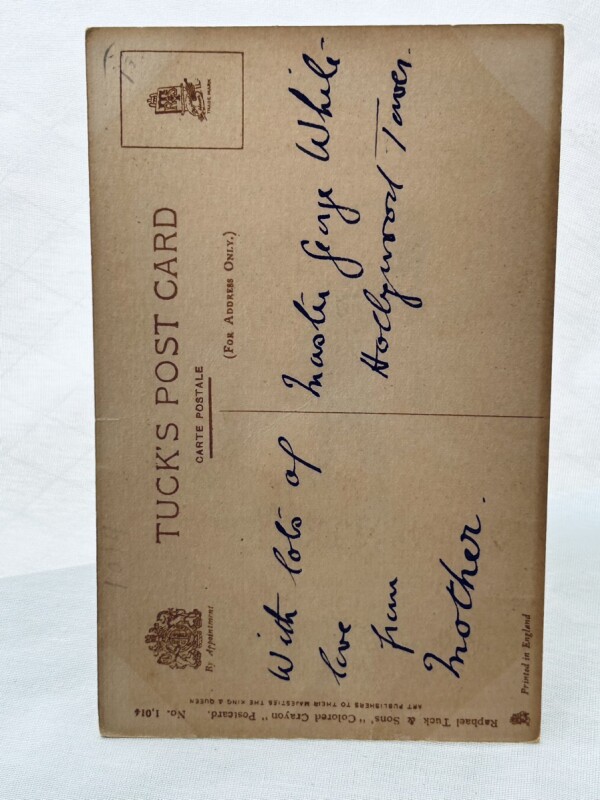 TUCK'S POST CARD
CARTE POSTALE
(FOR ADDRESS ONLY.)
By Appointment
TRADE MARK
With lots of
love
from
Mother.
Master George White
Hollywood Tower.
Printed in England
Raphael Tuck & Sons' "Colored Crayon" Postcard. No. 1,014
ART PUBLISHERS TO THEIR MAJESTIES THE KING & QUEEN